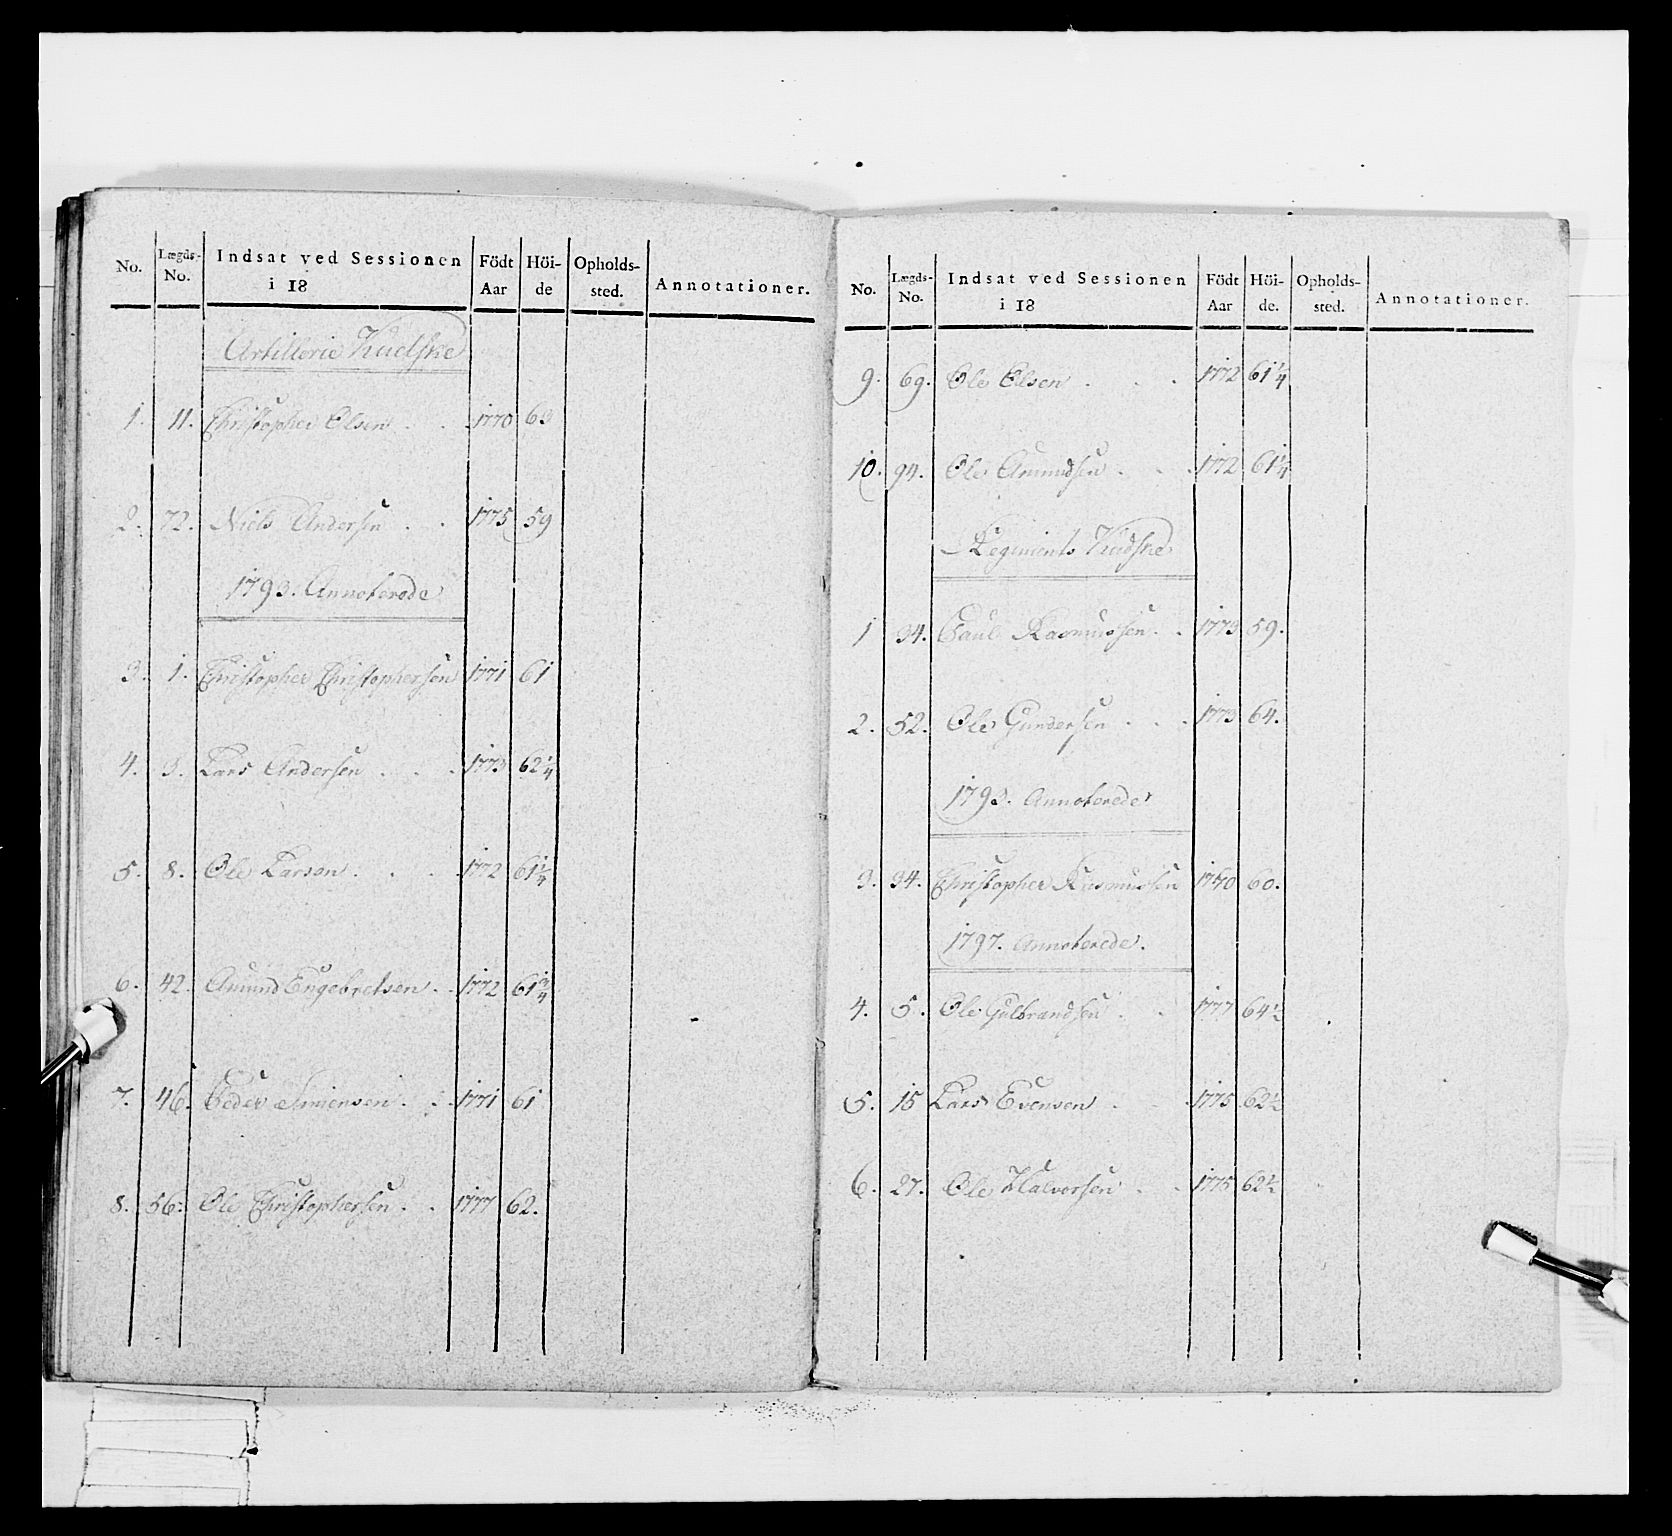 No. Lægds-No. Indsat ved Sessionen i 18 Födt Aar Höi-de Opholds-sted. Annotationer.
Artillerie Kudske
1. 11. Christopher Olsen . . . 1770 63
2. 72. Niels Andersen . . 1775 59
1793. Annoterede
3. 1. Christopher Christophersen 1771 61
4. 3. Lars Andersen . . . 1773 62 1/4
5. 8. Ole Larsen . . . . 1772 61 1/4
6. 42. Amund Engebretsen . . 1772 61 3/4
7. 46. Peder Simensen . . . 1771 61
8. 56. Ole Christophersen . . 1777 62.
No. Lægds-No. Indsat ved Sessionen i 18 Födt Aar Höi-de. Opholds-sted. Annotationer.
9. 69. Ole Olsen . . . 1772 61 1/4
10. 94. Ole Amundsen . . . 1772 61 1/4
Regiments Kudske
1 34. Paul Rasmussen . . 1773 59.
2. 52. Ole Gundersen . . . 1773 64.
1793. Annoterede
3. 34. Christopher Rasmussen 1770 60.
1797. Annoterede.
4. 5. Ole Gulbrandsen . . 1777 64 1/2
5. 15 Lars Evensen . . . 1775 62 1/2
6. 27. Ole Halvorsen . . 1775 62 1/2